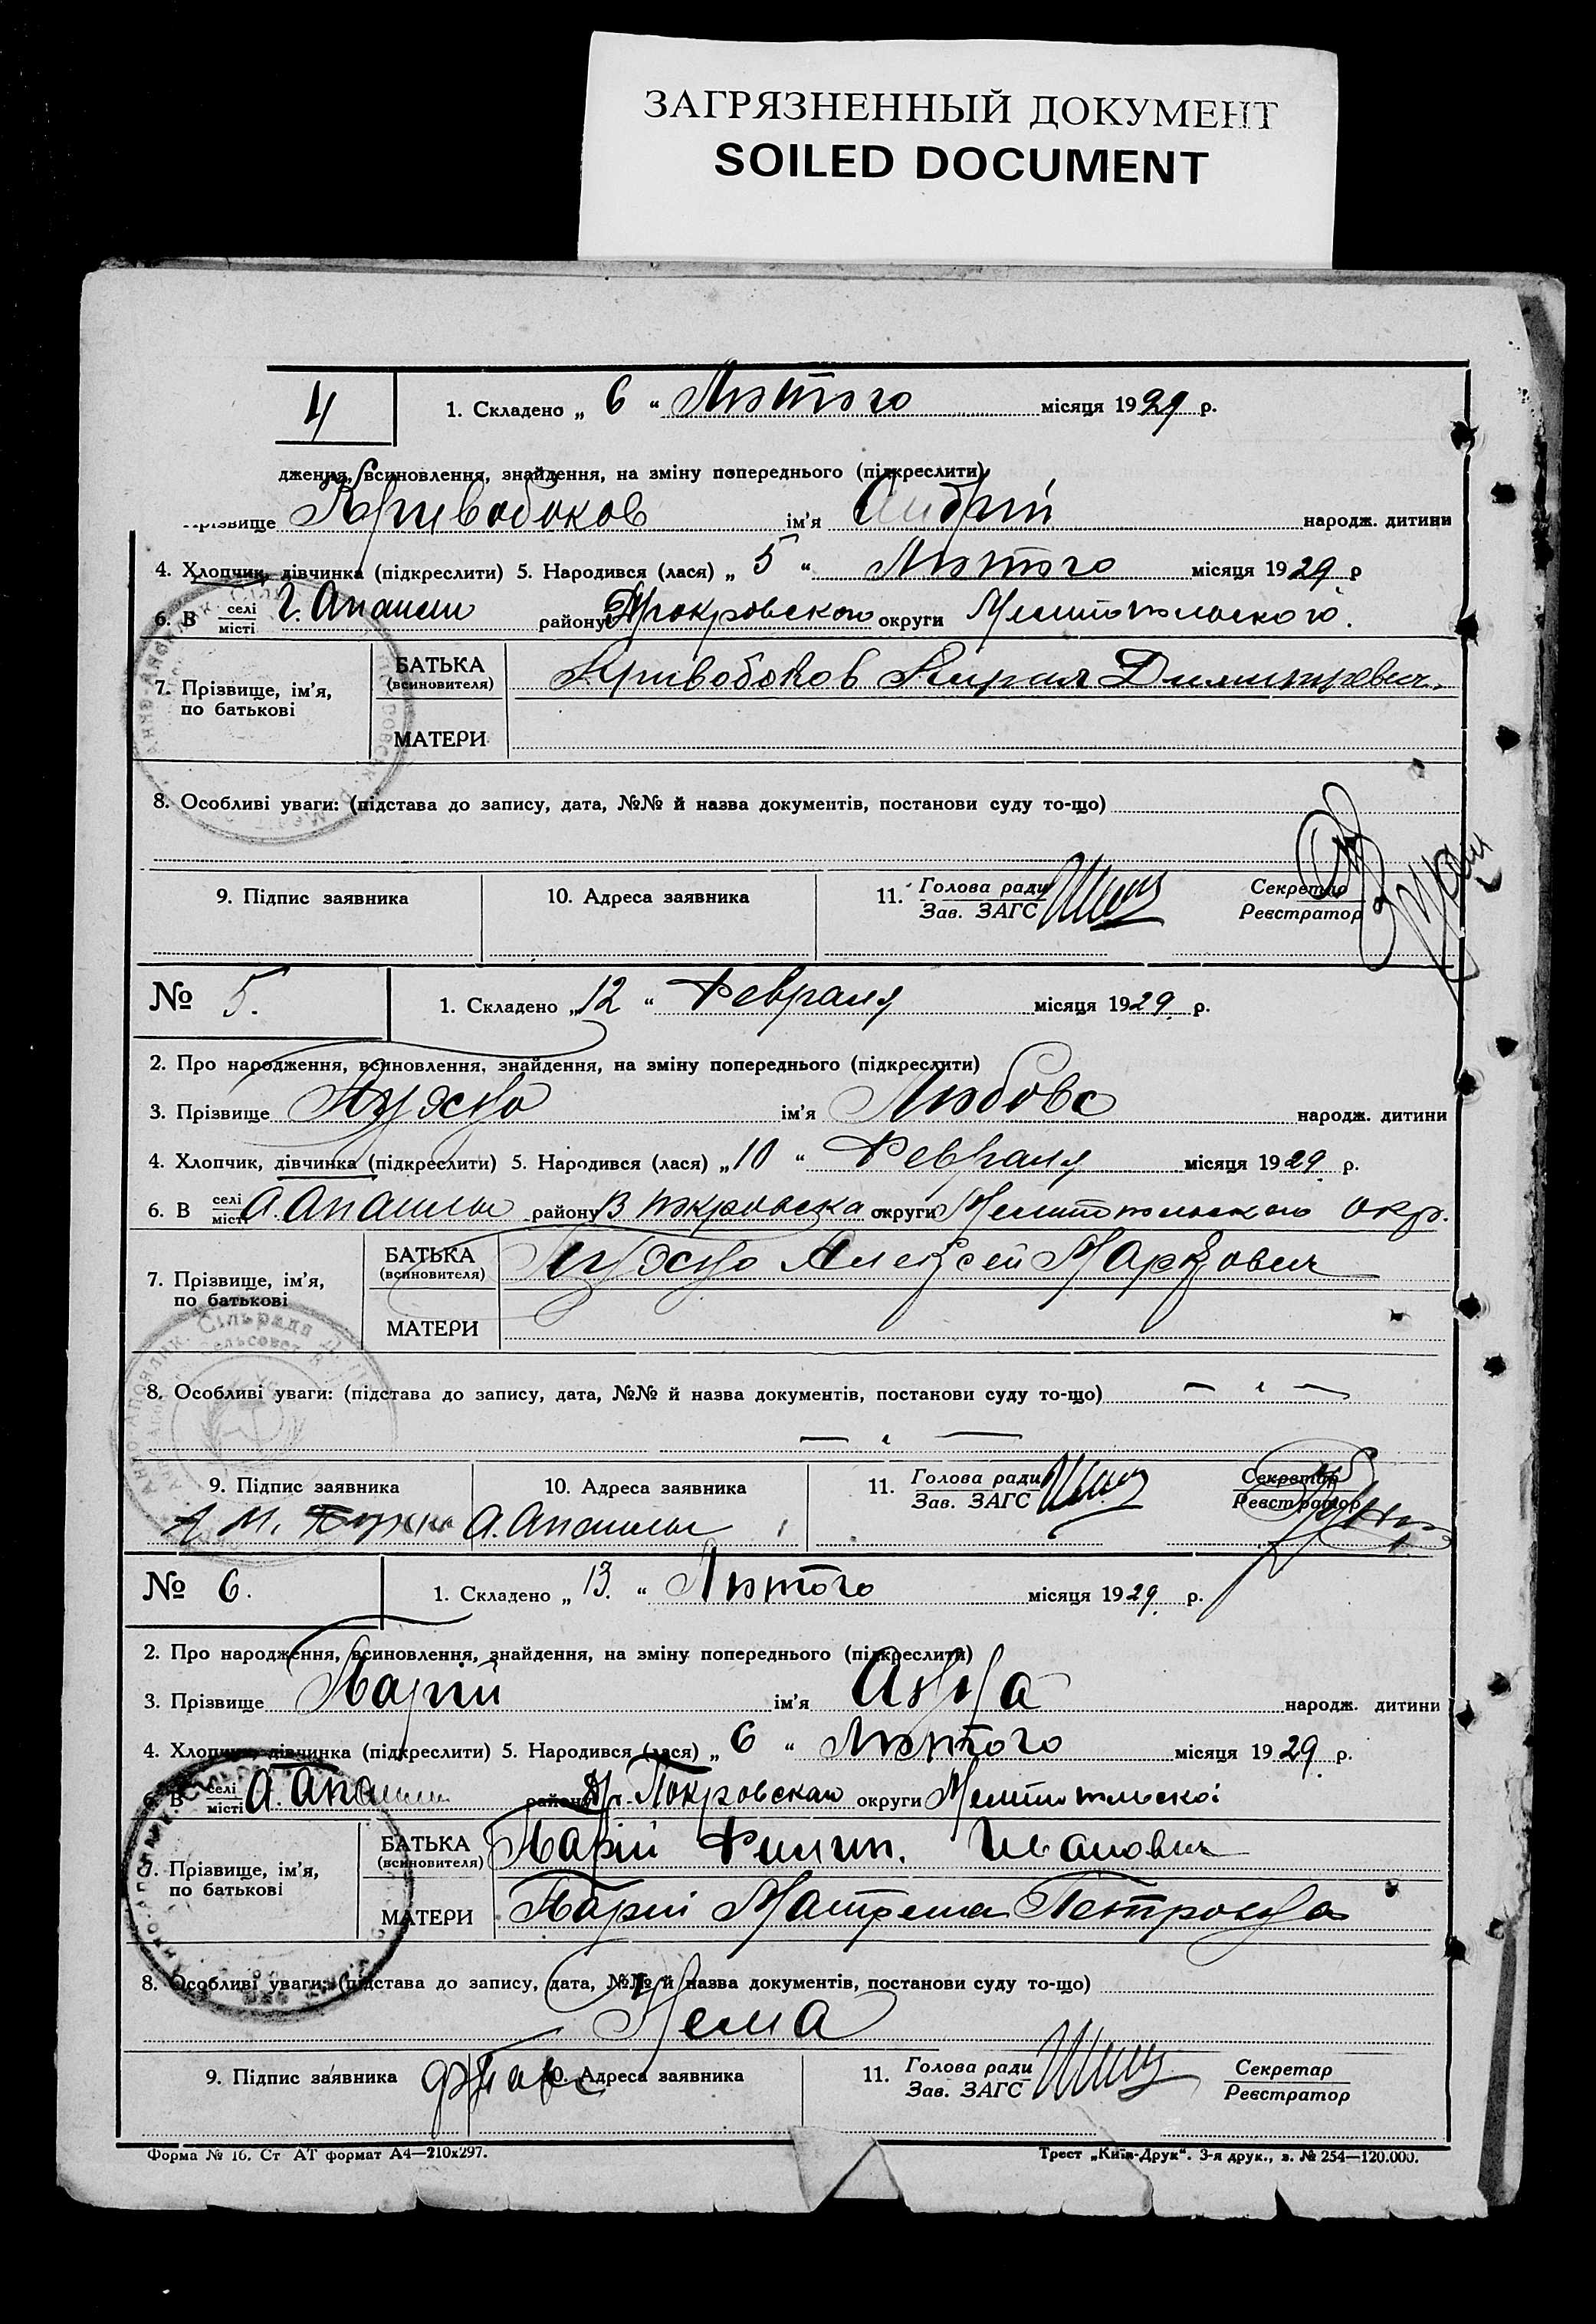 ЗАГРЯЗНЕННЫЙ ДОКУМЕНТ
SOILED DOCUMENT
4
1. Складено „ 6 “ Лютого місяця 1929 р.
дження, всиновлення, знайдення, на зміну попереднього (підкреслити)
Кривобоков ім’я Андрій народж. дитини
4. Хлопчик, дівчинка (підкреслити) 5. Народився (лася) „ 5 “ Лютого місяця 1929 р
6. В селі місті району Покровского округи Мелитопольского.
7. Прізвище, ім’я, по батькові
БАТЬКА (всиновителя) Кривобоков Кирил Димитрович.
МАТЕРИ
8. Особливі уваги: (підстава до запису, дата, №№ й назва документів, постанови суду то-що)
9. Підпис заявника 10. Адреса заявника 11. Голова ради Зав. ЗАГС Секретар Реєстратор
№ 5. 1. Складено „12 “ Февраля місяця 1929 р.
2. Про народження, всиновлення, знайдення, на зміну попереднього (підкреслити)
3. Прізвище ім’я Любовь народж. дитини
4. Хлопчик, дівчинка (підкреслити) 5. Народився (лася) „10 “ Февраля місяця 1929 р.
6. В селі місті району округи Мелитопольского окр.
7. Прізвище, ім’я, по батькові
БАТЬКА (всиновителя) Алексей Маркович
МАТЕРИ
8. Особливі уваги: (підстава до запису, дата, №№ й назва документів, постанови суду то-що)
9. Підпис заявника 10. Адреса заявника 11. Голова ради Зав. ЗАГС Секретар Реєстратор
№ 6. 1. Складено „ 13. “ Лютого місяця 1929 р.
2. Про народження, всиновлення, знайдення, на зміну попереднього (підкреслити)
3. Прізвище ім’я Анна народж. дитини
4. Хлопчик, дівчинка (підкреслити) 5. Народився (лася) „ 6 “ Лютого місяця 1929 р.
6. В селі місті району Покровского округи
7. Прізвище, ім’я, по батькові
БАТЬКА (всиновителя) Филип. Иванович
МАТЕРИ Петровна
8. Особливі уваги: (підстава до запису, дата, №№ й назва документів, постанови суду то-що)
Нема
9. Підпис заявника 10. Адреса заявника 11. Голова ради Зав. ЗАГС Секретар Реєстратор
Форма № 16. Ст АТ формат А4—210х297. Трест „Київ-Друк“. 3-я друк., з. № 254—120.000.